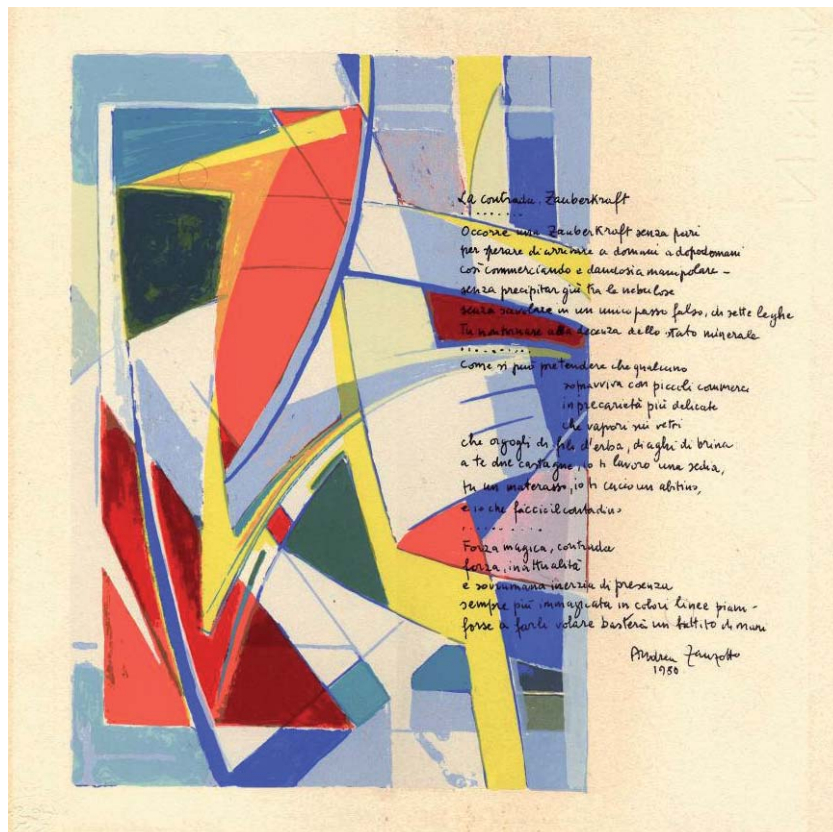 La contrada. Zauberkraft
. . . . . . . .
Occorre una Zauberkraft senza pari
per sperare di arrivare a domani a dopodomani
così commerciando e dandosi a manipolare –
senza precipitar giù tra le nebulose
senza scivolare in un unico passo falso, di sette leghe
Tu ritornare alla decenza dello stato minerale
. . . . . . . .
Come si può pretendere che qualcuno
sopravviva con piccoli commerci
in precarietà più delicate
che vapori sui vetri
che orgogli di fili d'erba, di aghi di brina
a te due castagne, io ti lavoro una sedia,
tu un materasso, io ti cucio un abitino,
e io che faccio il contadino
. . . . . . . .
Forza magica, contrada
forza, inattualità
e sovrumana inerzia di presenza
sempre più immagicata in colori linee piani –
forse a farli volare basterà un battito di mani
Andrea Zanzotto
1980